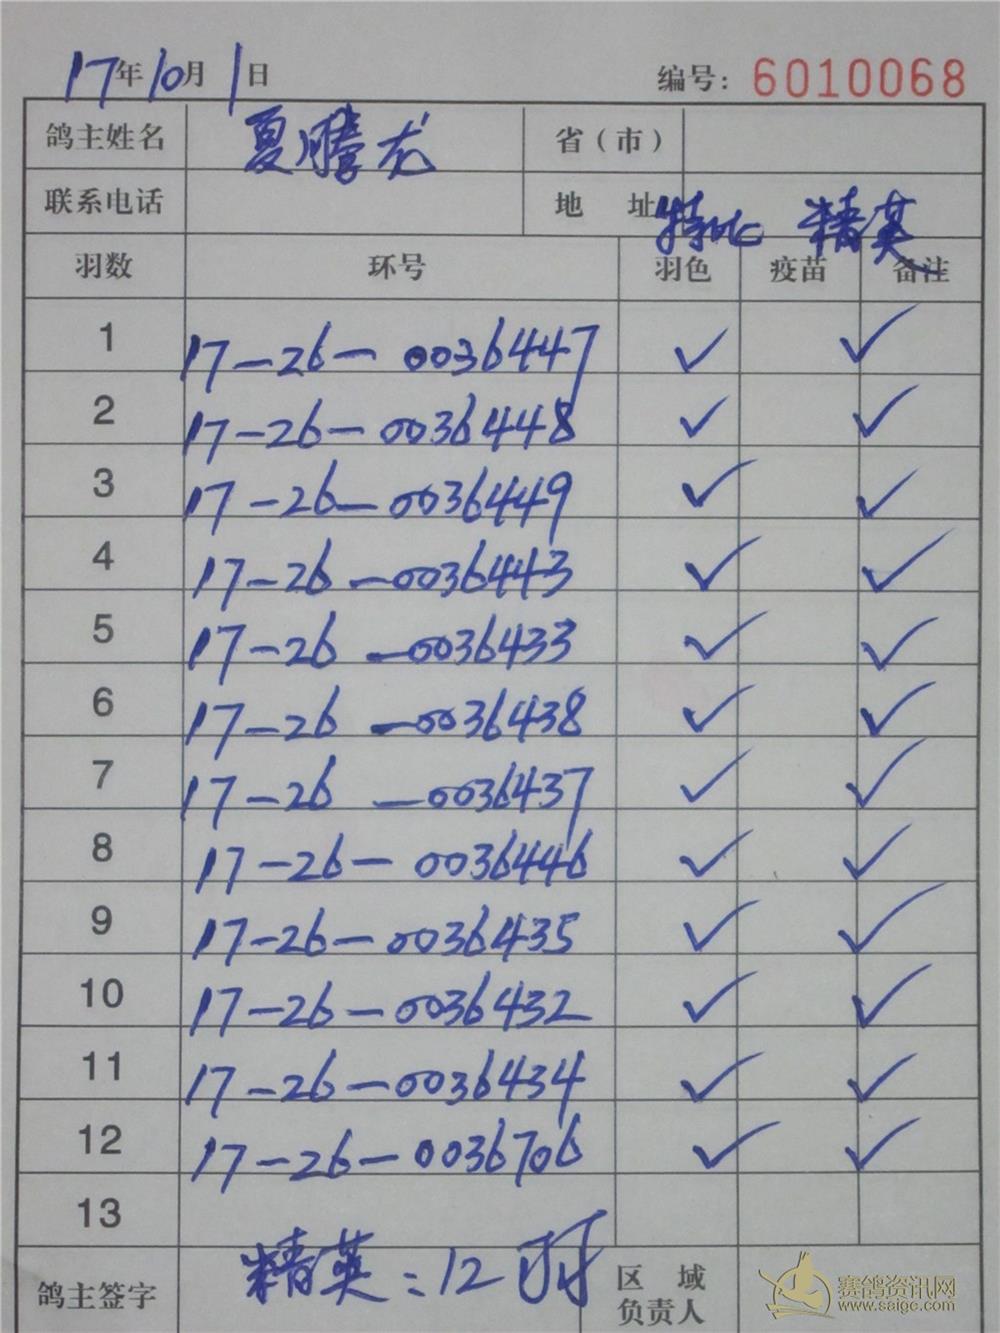 17年10月1日 编号：6010068
鸽主姓名 夏腾龙 省（市）
联系电话 地 址 特比 精英
羽数 环号 羽色 疫苗 备注
1 17-26-0036447 ✓ ✓
2 17-26-0036448 ✓ ✓
3 17-26-0036449 ✓ ✓
4 17-26-0036443 ✓ ✓
5 17-26-0036433 ✓ ✓
6 17-26-0036438 ✓ ✓
7 17-26-0036437 ✓ ✓
8 17-26-0036446 ✓ ✓
9 17-26-0036435 ✓ ✓
10 17-26-0036432 ✓ ✓
11 17-26-0036434 ✓ ✓
12 17-26-0036706 ✓ ✓
13
鸽主签字 精英：12羽 区 域
负责人
赛鸽资讯网
www.saigc.com